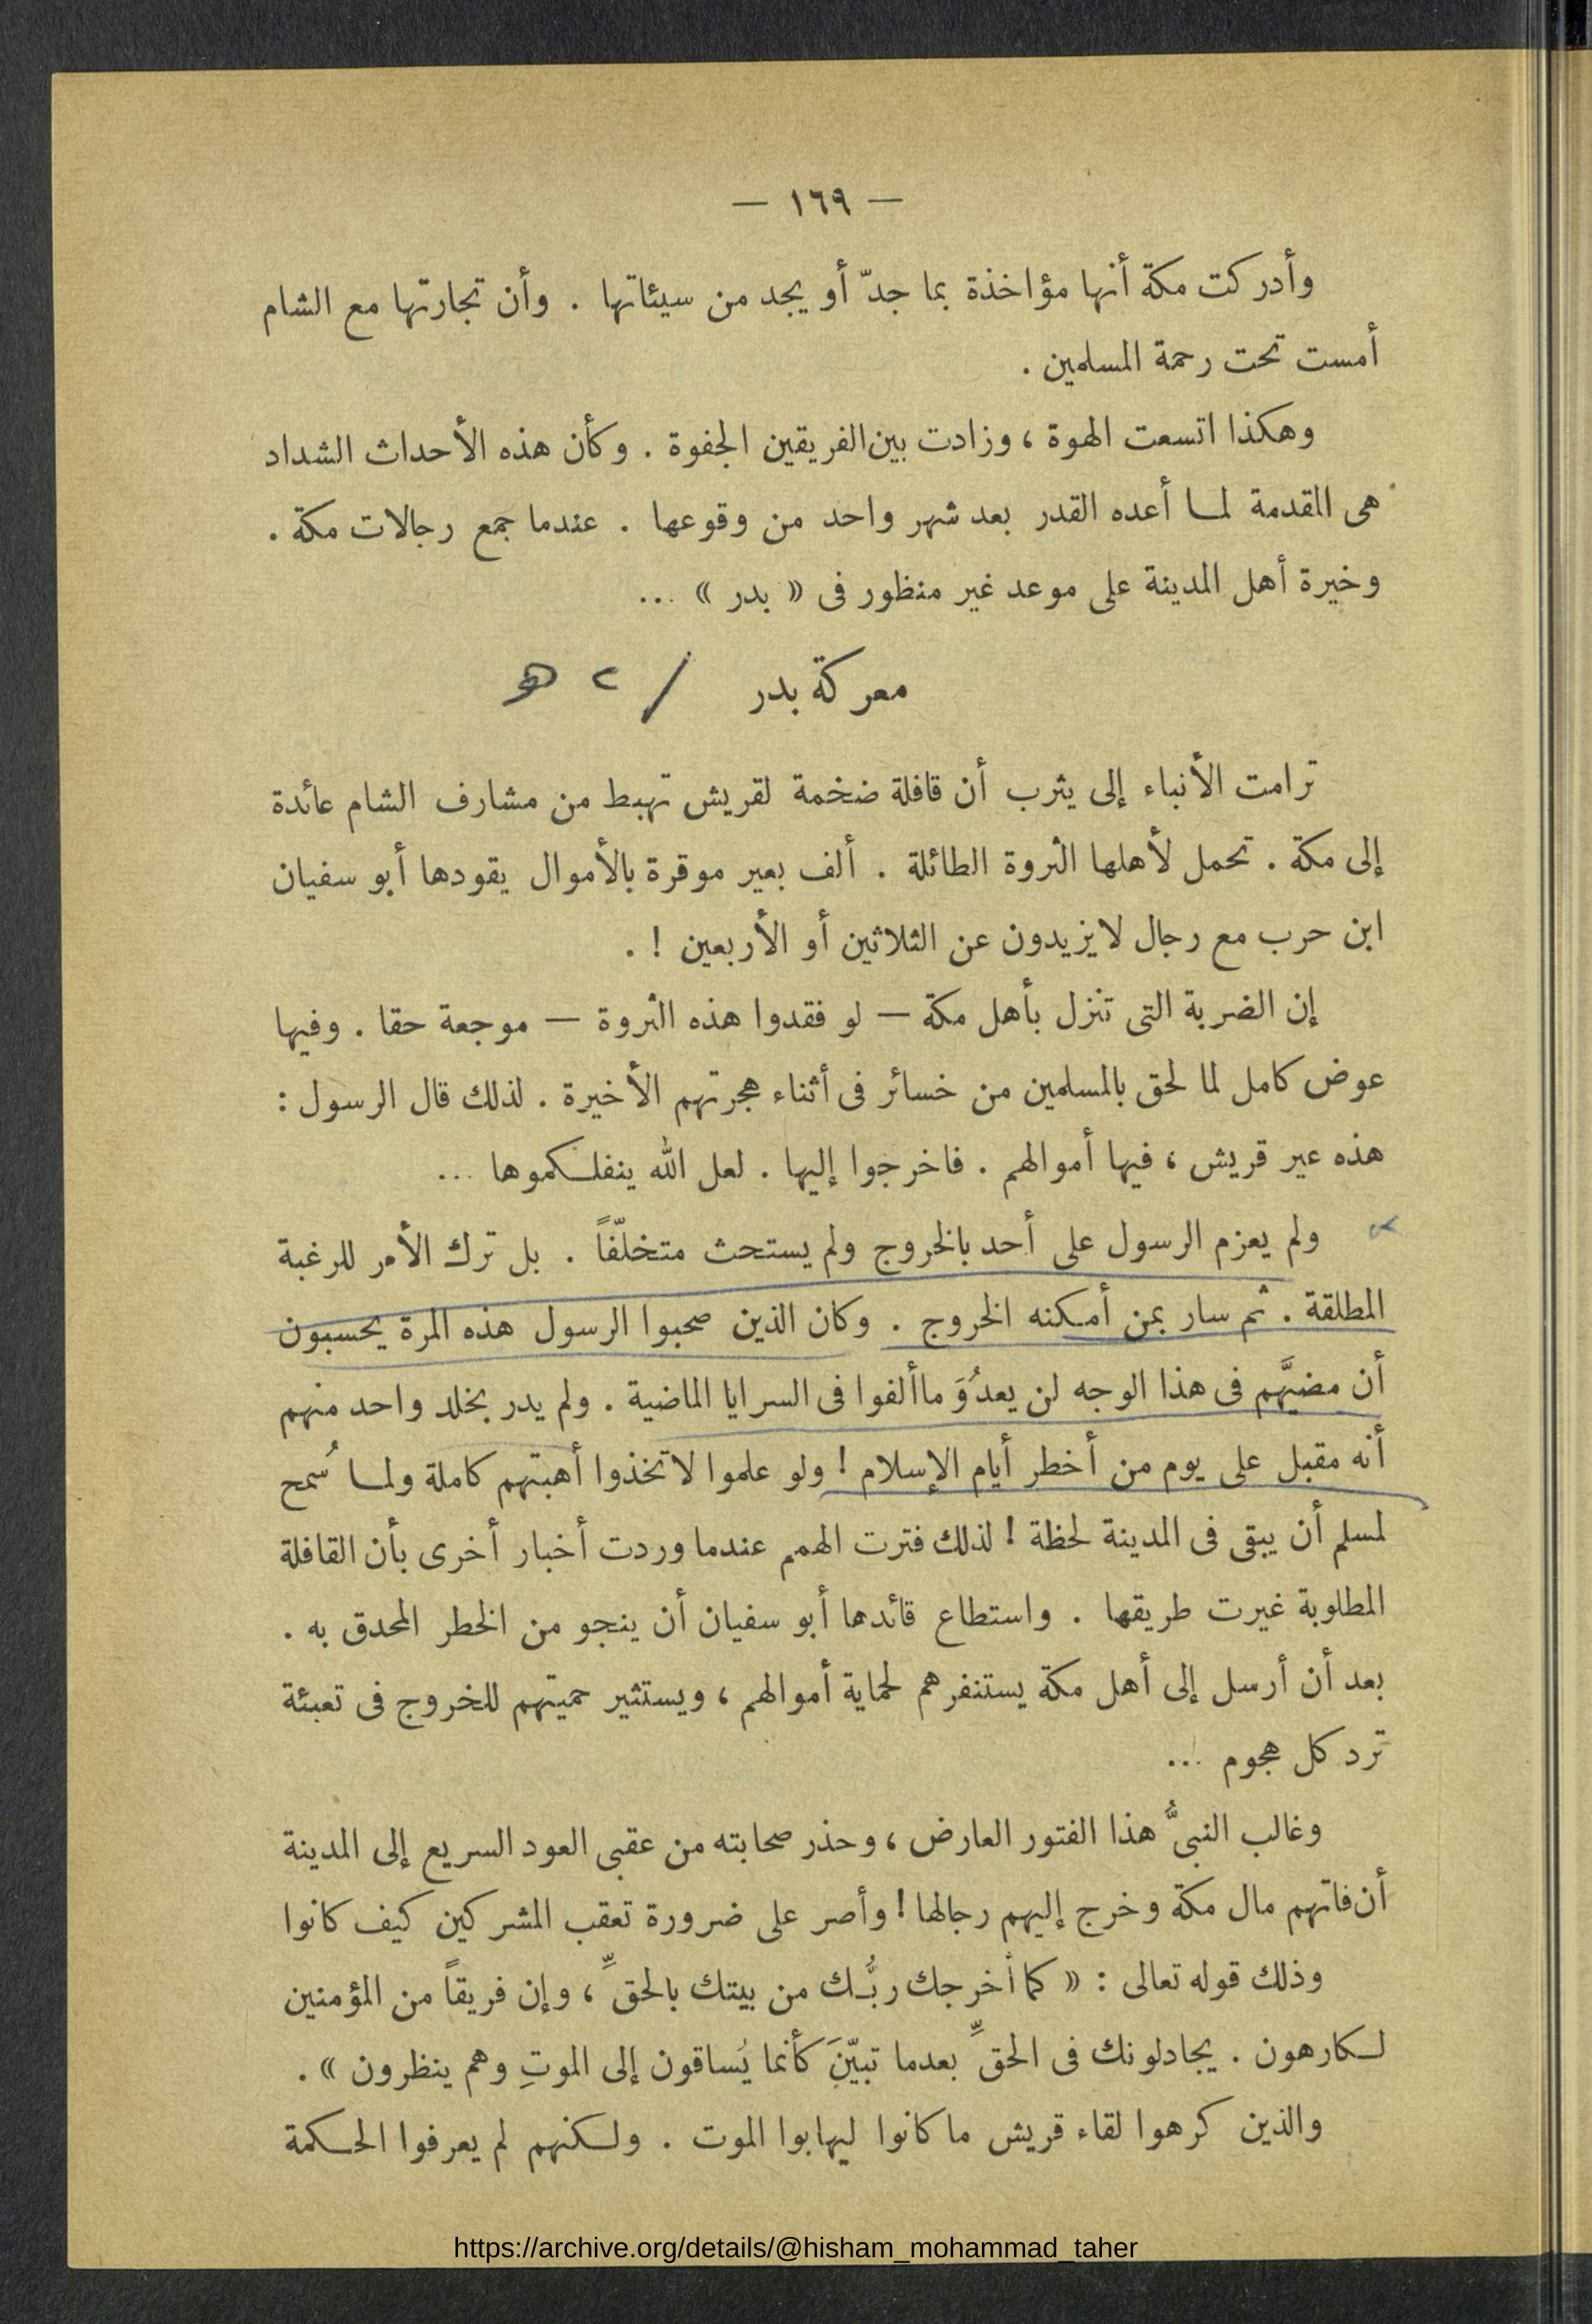 — ١٦٩ —
وأدركت مكة أنها مؤاخذة بما جدّ أو يجد من سيئاتها . وأن تجارتها مع الشام
أمست تحت رحمة المسلمين .
وهكذا اتسعت الهوة ، وزادت بين الفريقين الجفوة . وكأن هذه الأحداث الشداد
هى المقدمة لمـا أعده القدر بعد شهر واحد من وقوعها . عندما جمع رجالات مكة .
وخيرة أهل المدينة على موعد غير منظور فى « بدر » ...
معركة بدر / ٢ هـ
ترامت الأنباء إلى يثرب أن قافلة ضخمة لقريش تهبط من مشارف الشام عائدة
إلى مكة . تحمل لأهلها الثروة الطائلة . ألف بعير موقرة بالأموال يقودها أبو سفيان
ابن حرب مع رجال لايزيدون عن الثلاثين أو الأربعين ! .
إن الضربة التى تنزل بأهل مكة — لو فقدوا هذه الثروة — موجعة حقا . وفيها
عوض كامل لما لحق بالمسلمين من خسائر فى أثناء هجرتهم الأخيرة . لذلك قال الرسول :
هذه عير قريش ، فيها أموالهم . فاخرجوا إليها . لعل الله ينفلـكموها ...
ولم يعزم الرسول على أحد بالخروج ولم يستحث متخلّفاً . بل ترك الأمر للرغبة
المطلقة . ثم سار بمن أمـكنه الخروج . وكان الذين صحبوا الرسول هذه المرة يحسبون
أن مضيَّهم فى هذا الوجه لن يعدُوَ ماألفوا فى السرايا الماضية . ولم يدر بخلد واحد منهم
أنه مقبل على يوم من أخطر أيام الإسلام ! ولو علموا لاتخذوا أهبتهم كاملة ولمـا سُمح
لمسلم أن يبقى فى المدينة لحظة ! لذلك فترت الهمم عندما وردت أخبار أخرى بأن القافلة
المطلوبة غيرت طريقها . واستطاع قائدها أبو سفيان أن ينجو من الخطر المحدق به .
بعد أن أرسل إلى أهل مكة يستنفرهم لحماية أموالهم ، ويستثير حميتهم للخروج فى تعبئة
ترد كل هجوم ...
وغالب النبىُّ هذا الفتور العارض ، وحذر صحابته من عقبى العود السريع إلى المدينة
أن فاتهم مال مكة وخرج إليهم رجالها ! وأصر على ضرورة تعقب المشركين كيف كانوا
وذلك قوله تعالى : « كما أخرجك ربُّـك من بيتك بالحقِّ ، وإن فريقاً من المؤمنين
لـكارهون . يجادلونك فى الحقِّ بعدما تبيّنَ كأنما يُساقون إلى الموتِ وهم ينظرون » .
والذين كرهوا لقاء قريش ما كانوا ليهابوا الموت . ولـكنهم لم يعرفوا الحـكمة
https://archive.org/details/@hisham_mohammad_taher